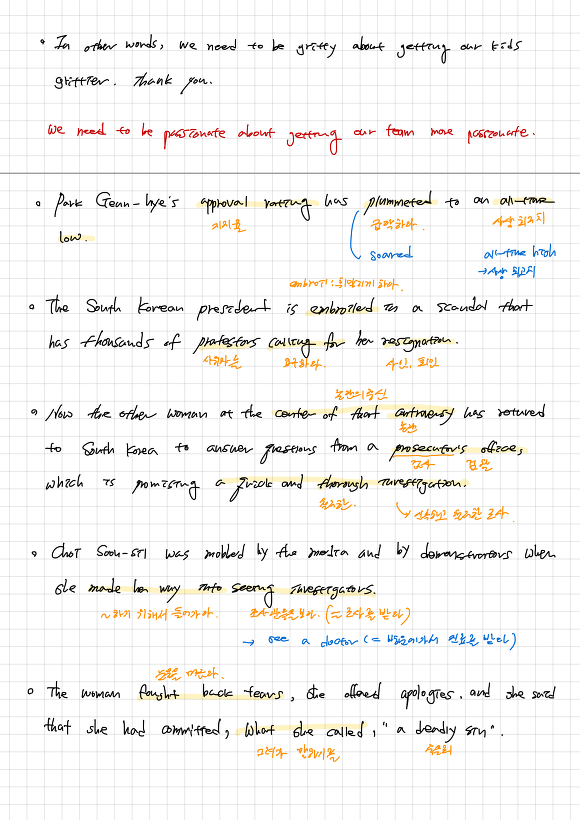 In other words, we need to be gritty about getting our kids
grittier. Thank you.
We need to be passionate about getting our team more passionate.
Park Geun-hye's approval rating has plummeted to an all-time
지지율 급락하다. 사상 최저치
low.
soared all-time high
→ 사상 최고치
embroil : 휘말리게 하다.
The South Korean president is embroiled in a scandal that
has thousands of protestors calling for her resignation.
시위자들 요구하다. 사임, 퇴임
논란의 중심
Now the other woman at the center of that controversy has retured
논란
to South Korea to answer questions from a prosecutor's office,
검사 검찰
which is promising a quick and thorough investigation.
철저한. 신속하고 철저한 조사
Choi Soon-sil was mobbed by the media and by demonstrators when
she made her way into seeing investigators.
~하기 위해서 들어가다. 조사관들을 보다. (= 조사를 받다)
→ see a doctor (= 병원에가서 진료를 받다)
눈물을 머금다.
The woman fought back tears, she offered apologies, and she said
that she had committed, what she called, "a deadly sin".
그녀가 말하기를 죽을죄